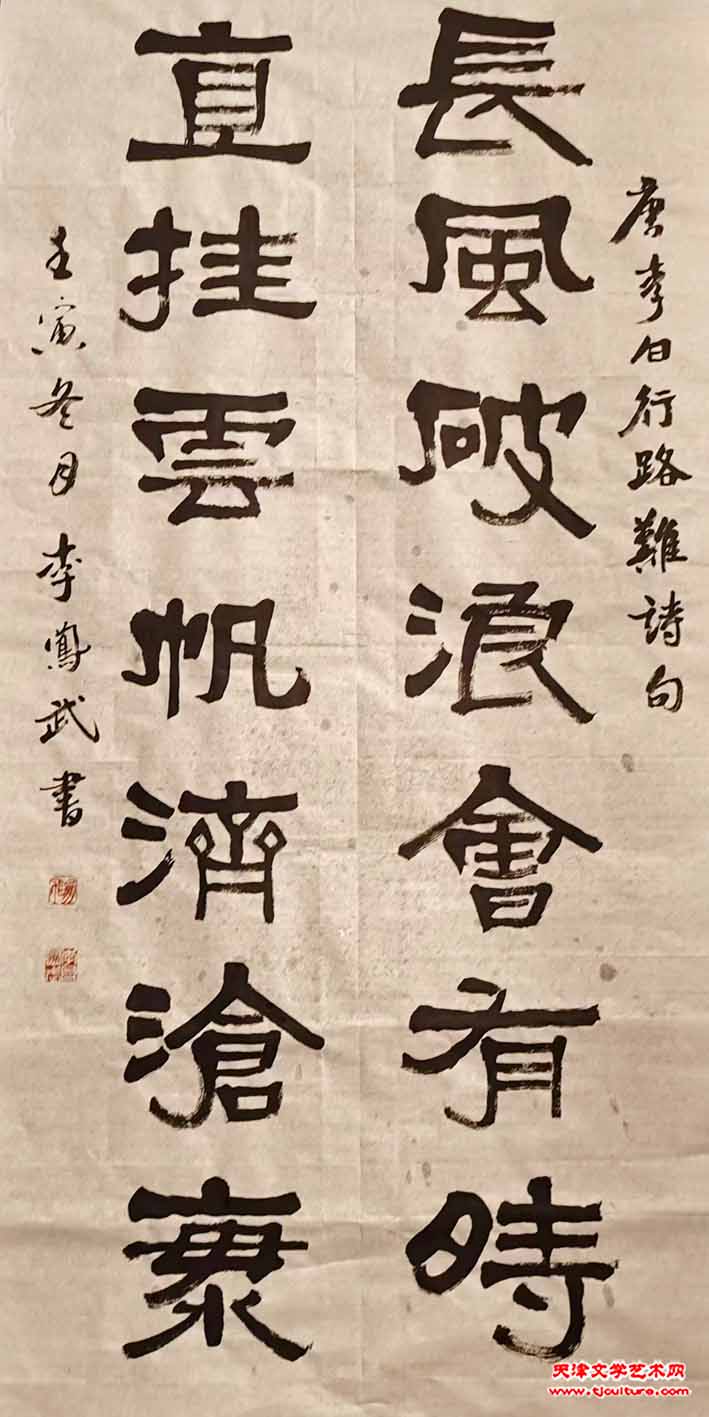 唐李白行路難詩句
長風破浪會有時
直挂雲帆濟滄海
壬寅冬月李鳳武書
天津文学艺术网
www.tjculture.com